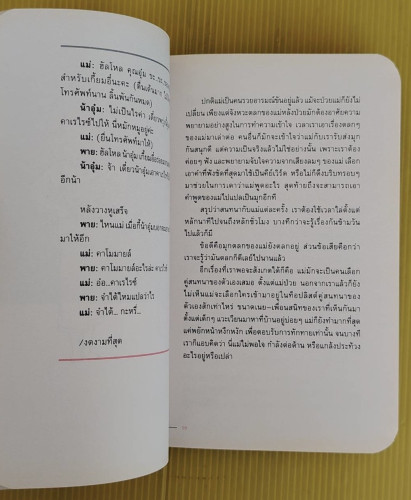 แม่: ฮัลโหล คุณอุ๋ม ขะ..ขะ
สำหรับเกี้ยมอี๋นะคะ (ตื่นเต้นมาก ไม่
โทรศัพท์นาน ลิ้นพันกันหมด)
น้าอุ๋ม: ไม่เป็นไรค่า เดี๋ยว
คาเรไรซ์ไปให้ นี่มีหักหมูอยู่ค่ะ
แม่: (ยื่นโทรศัพท์มาให้)
พาย: ฮัลโหลน้าอุ๋ม
น้าอุ๋ม: จ้า เดี๋ยวน้าอุ๋ม
อีกน้า
หลังวางหูเสร็จ
พาย: ไหนแม่ เมื่อกี้น้าอุ๋ม
มาให้อีก
แม่: คาโมมายล์
พาย: คาโมมายล์อะไรล่ะ คาเรไรซ์
แม่: อ๋อ..คาเรไรซ์
พาย: จำได้ไหมแปลว่าไร
แม่: จำได้... กะหรี่...
/งดงามที่สุด
ปกติแม่เป็นคนรวยอารมณ์ขันอยู่แล้ว แม้จะป่วยแม่ก็ยังไม่
เปลี่ยน เพียงแต่จังหวะตลกของแม่หลังป่วยมักต้องอาศัยความ
พยายามอย่างสูงในการทำความเข้าใจ เวลาเราเอาเรื่องตลกๆ
ของแม่มาเล่าต่อ คนอื่นก็มักจะเข้าใจว่าแม่กับเรารับส่งมุก
กันสนุกดี แต่ความเป็นจริงแล้วไม่ใช่อย่างนั้น เพราะเราต้อง
ค่อยๆ ฟัง และพยายามจับใจความจากเสียงลมๆ ของแม่ เลือก
เอาคำที่ฟังชัดที่สุดมาใช้เป็นคีย์เวิร์ด หรือไม่ก็ดึงบริบทรอบๆ
มาช่วยในการเดาว่าแม่พูดอะไร สุดท้ายถึงจะสามารถเอา
คำพูดของแม่ไปแปลเป็นมุกอีกที
สรุปว่าสนทนากับแม่แต่ละครั้ง เราต้องใช้เวลาได้ตั้งแต่
หลักนาทีไปจนถึงหลักชั่วโมง บางทีกว่าจะรู้เรื่องกันข้ามวัน
ไปแล้วก็มี
ข้อดีคือมุกตลกของแม่ยังตลกอยู่ ส่วนข้อเสียคือกว่า
เราจะรู้ว่ามันตลกก็ดีเลย์ไปนานแล้ว
อีกเรื่องที่เราพอจะสังเกตได้ก็คือ แม่มักจะเป็นคนเลือก
คู่สนทนาของตัวเองเสมอ ตั้งแต่แม่ป่วย นอกจากเราแล้วก็ยัง
ไม่เห็นแม่จะเลือกใครเข้ามาอยู่ในท็อปลิสต์คู่สนทนาของ
ตัวเองสักเท่าไหร่ ขนาดเนย-เพื่อนสนิทของเราที่เห็นกันมา
ตั้งแต่เด็กๆ แวะเวียนมาหาที่บ้านอยู่บ่อยๆ แม่ก็ยังทำมากที่สุด
แค่พยักหน้าหงึกหงัก เพื่อตอบรับการทักทายเท่านั้น จนบางที
เราก็แอบคิดว่า นี่แม่ไม่พอใจ กำลังต่อต้าน หรือแกล้งประท้วง
อะไรอยู่หรือเปล่า